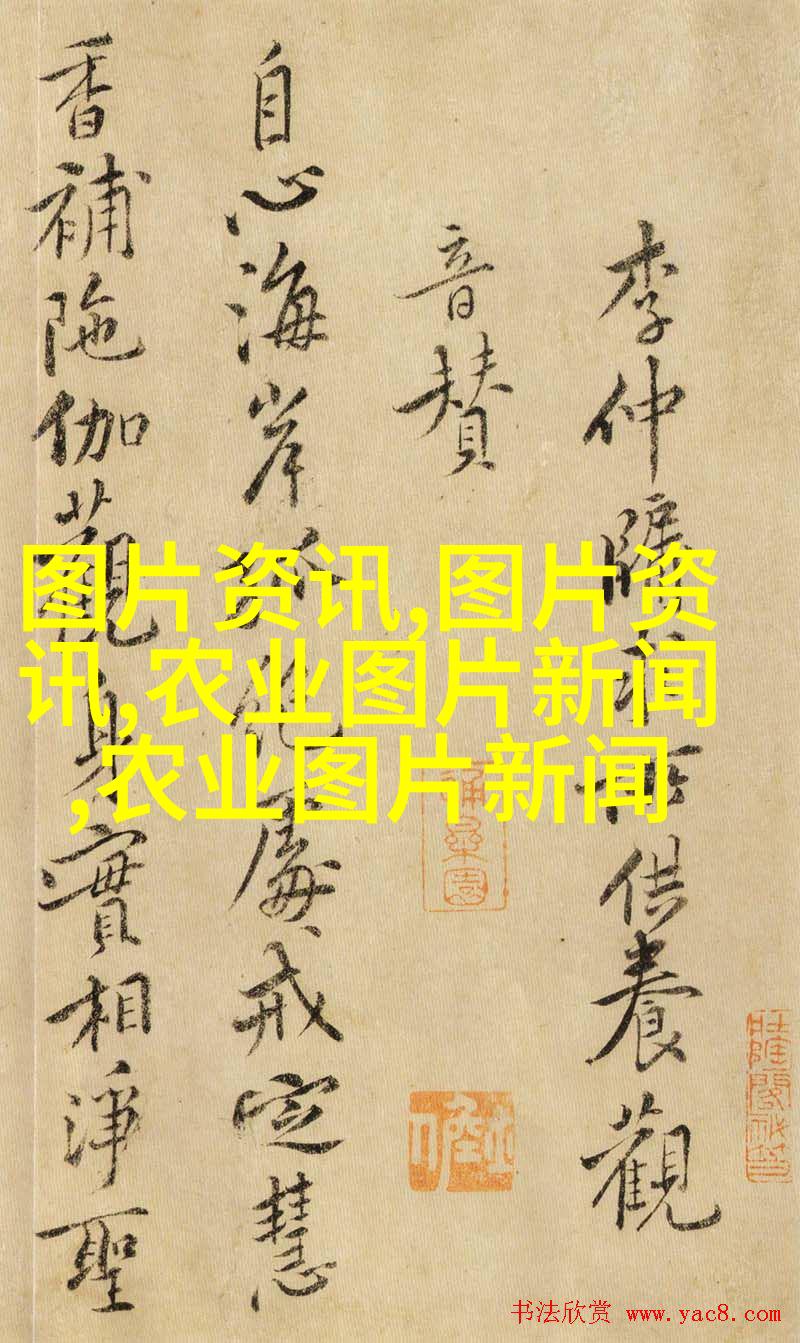 李仲牖求作供養觀
音贊
自心海岸孤絶處戒定慧
香補陁伽觀身實相淨聖
图片资讯,图片资
讯,农业图片新闻
,农业图片新闻
书法欣赏 www.yac8.com